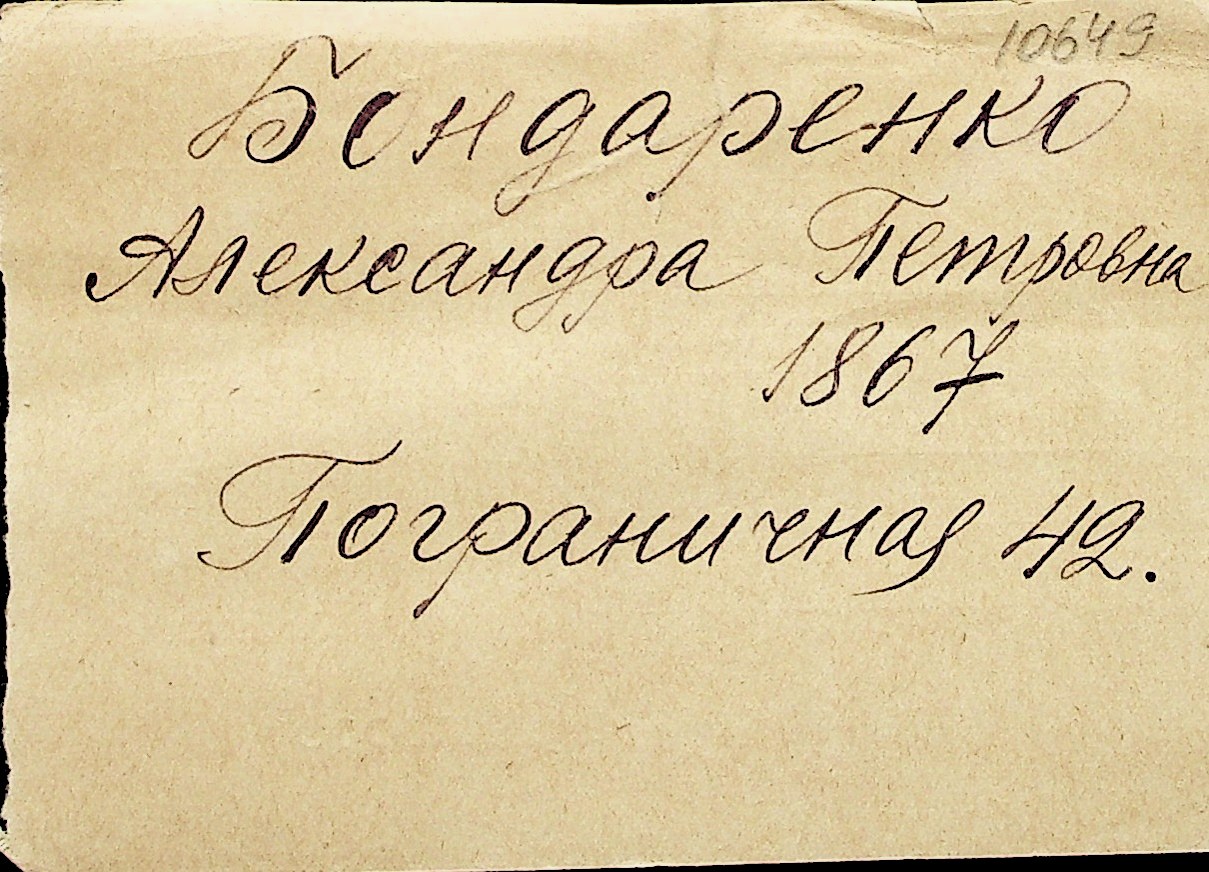 10649
Бондаренко
Александра Петровна
1867
Пограничная 42.